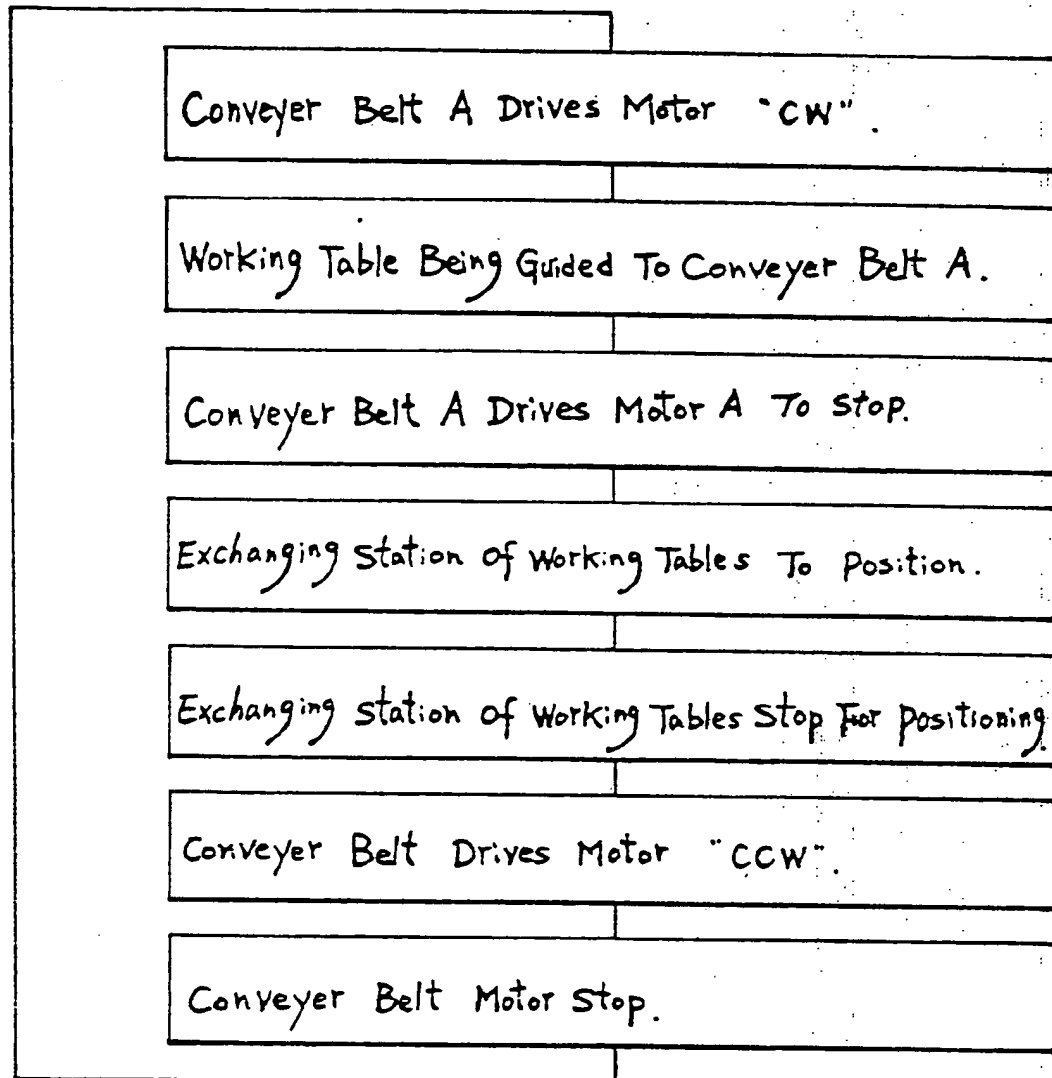 Conveyer Belt A Drives Motor "CW".
Working Table Being Guided To Conveyer Belt A.
Conveyer Belt A Drives Motor A To Stop.
Exchanging Station Of Working Tables To Position.
Exchanging Station Of Working Tables Stop For Positioning.
Conveyer Belt Drives Motor "CCW".
Conveyer Belt Motor Stop.